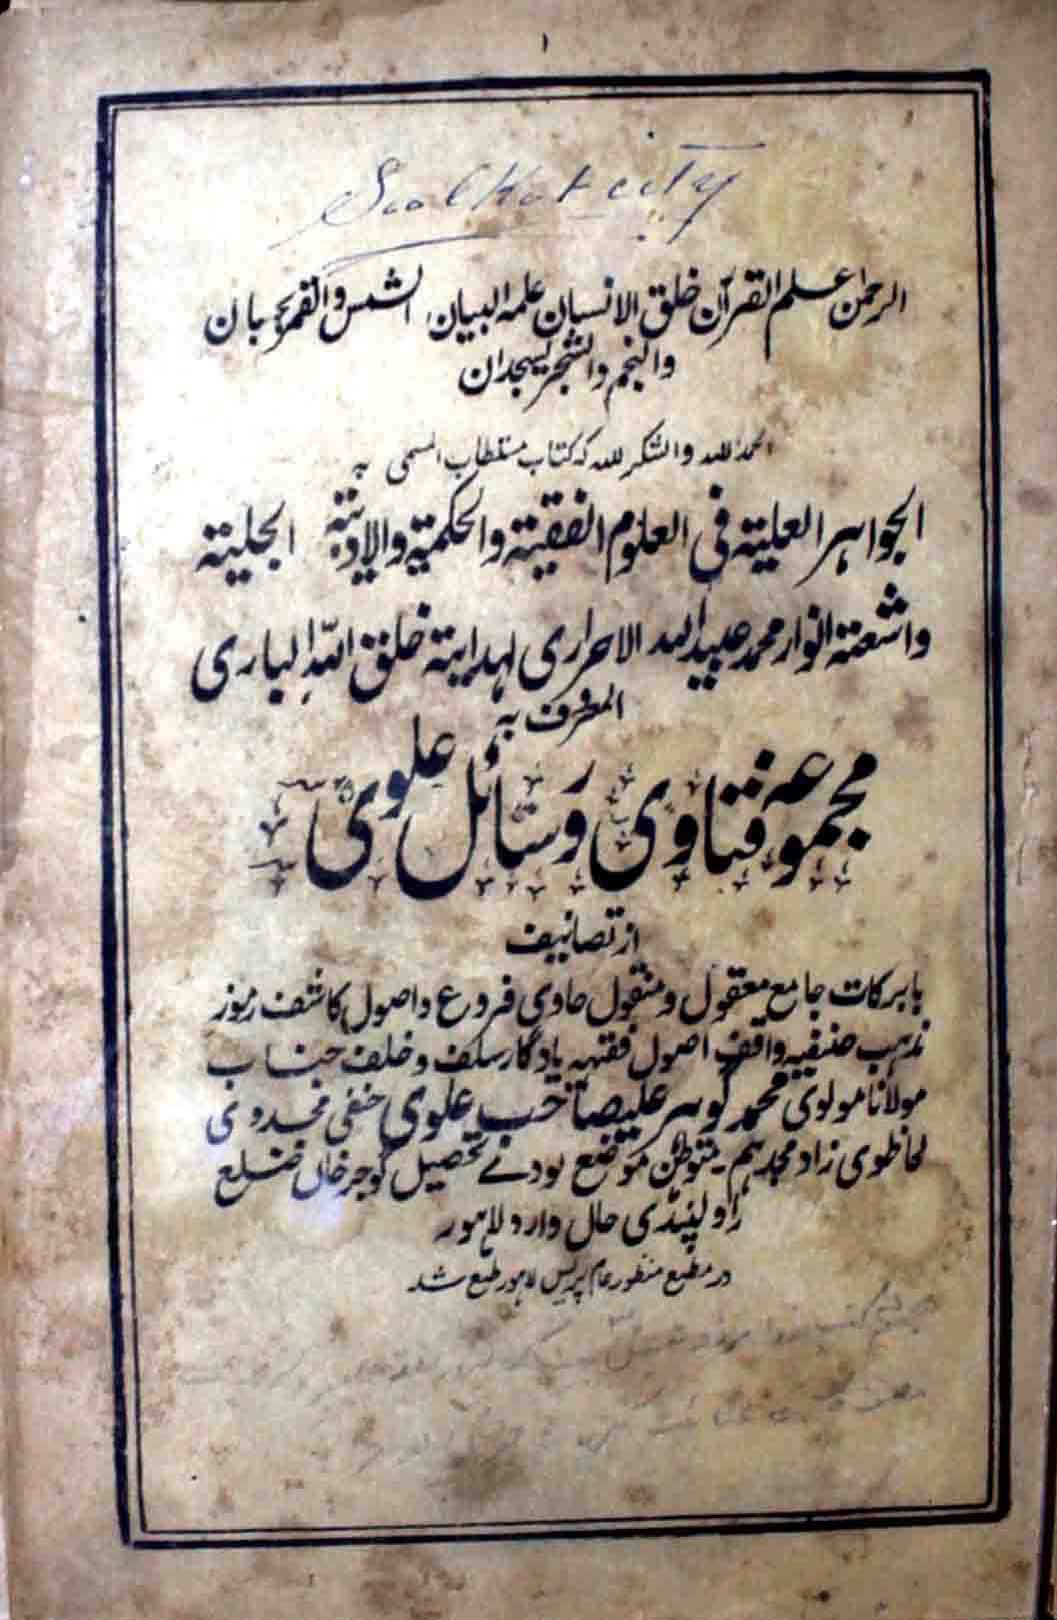 ۱
Sialkot city
الرحمٰن علم القرآن خلق الانسان علمہ البیان الشمس والقمر بحسبان
والنجم والشجر یسجدان
الحمد للہ والشکر للہ کہ کتاب مستطاب المسمی بہ
الجواہر العلیۃ فی العلوم الفقہیۃ والحکمیۃ والادبیۃ الجلیۃ
واشعتہ انوار محمد عبید اللہ الاحراری لہدایۃ خلق اللہ الباری
المعروف بہ
مجموعہ فتاوی و رسائل علوی
از تصانیف
بابرکات جامع معقول و منقول حاوی فروع و اصول کاشف رموز
مذہب حنفیہ واقف اصول فقہیہ یادگار سلف و خلف جناب
مولانا مولوی محمد گوہر علی صاحب علوی حنفی مجددی
زاد مجدہم متوطن موضع تحصیل گوجرخاں ضلع
راولپنڈی حال وارد لاہور
در مطبع منظور عام پریس لاہور طبع شد